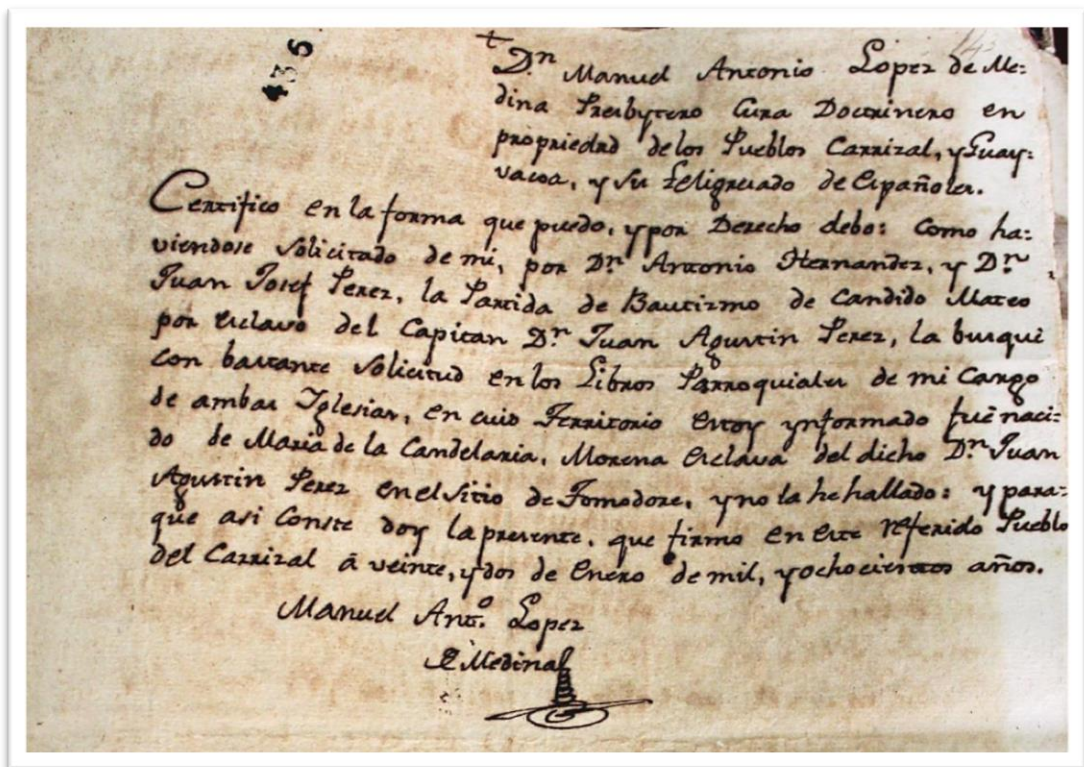 436
143
Dn Manuel Antonio Lopez de Me:
dina Presbytero Cura Doctrinero en
propriedad de los Pueblos Carrizal, y Guay:
vacoa, y su feligresado de Españoles.
Certifico en la forma que puedo, y por Derecho debo: Como ha:
viendose solicitado de mi, por Dn Antonio Hernandez, y Dn
Juan Josef Perez, la Partida de Bautizmo de Candido Mateo
por esclavo del Capitan Dn Juan Agustin Perez, la busqué
con bastante solicitud en los Libros Parroquiales de mi cargo
de ambas Iglesias, en cuio Territorio estoy ynformado fué naci:
do de Maria de la Candelaria, Morena esclava del dicho Dn Juan
Agustin Perez en el sitio de Tomodore, y no la he hallado: y para:
que asi Conste doy la presente, que firmo en este referido Pueblo
del Carrizal á veinte, y dos de Enero de mil, y ochocientos años.
Manuel Anto. Lopez
de Medina